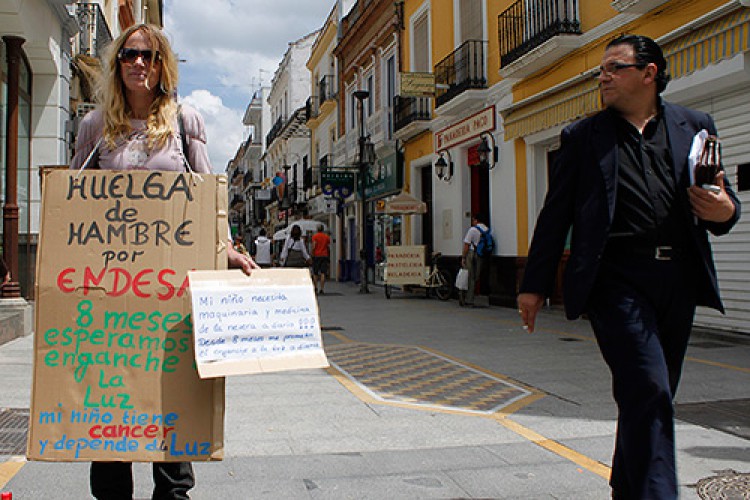 HUELGA
de
HAMBRE
por
ENDESA
8 meses
esperamos
enganche
La
Luz
mi niño tiene
cancer
y depende de Luz
Mi niño necesita
maquinaria y medicina
de la nevera a diario
Desde 8 meses pedimos
el enganche a la
PANADERIA PACO
PANADERIA
PASTELERIA
HELADERIA